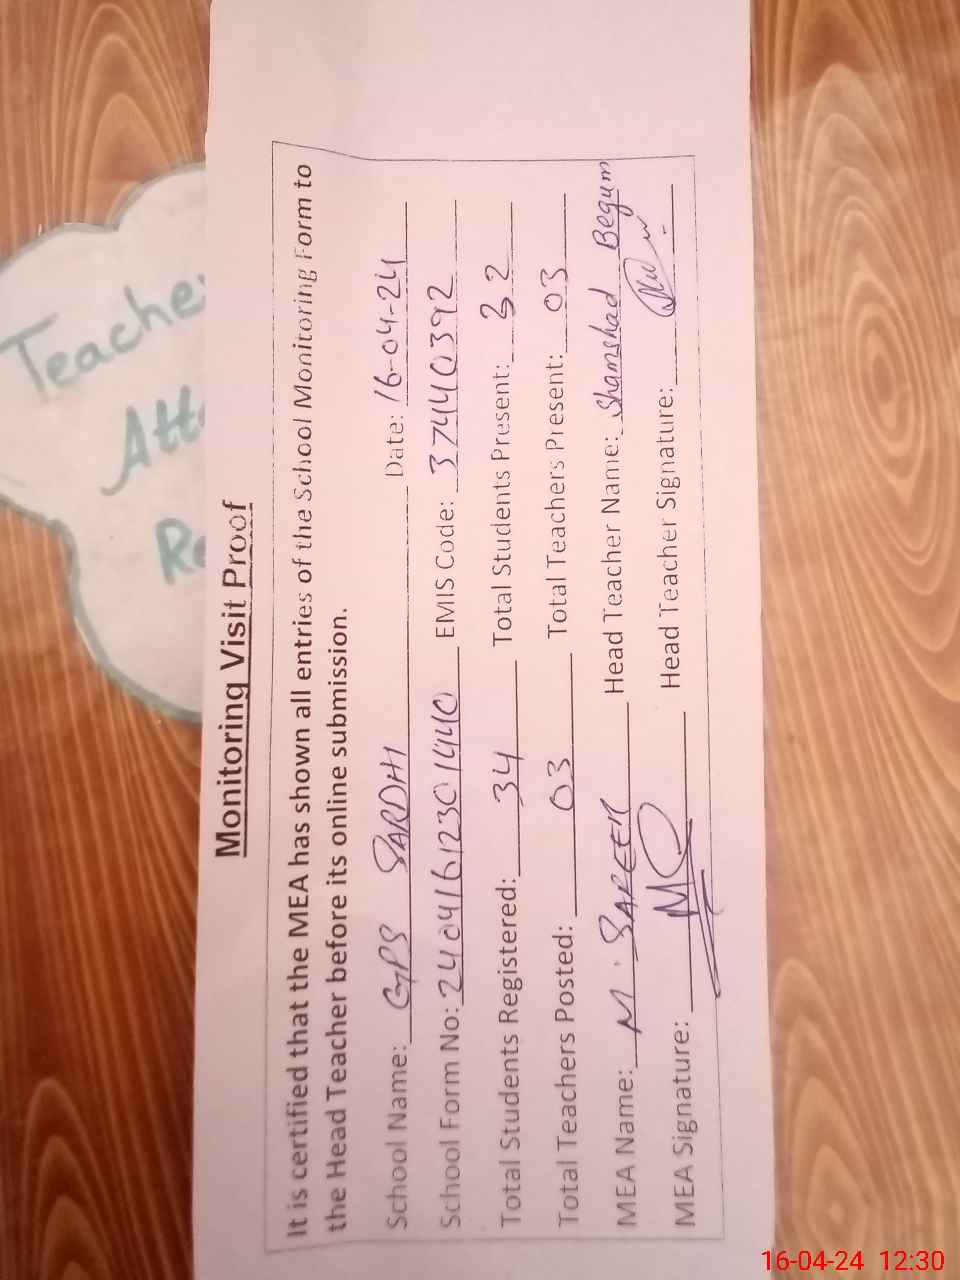 Monitoring Visit Proof
It is certified that the MEA has shown all entries of the School Monitoring Form to
the Head Teacher before its online submission.
School Name: GPS SARDHI Date: 16-04-24
School Form No: 24041612301440 EMIS Code: 37440392
Total Students Registered: 34 Total Students Present: 32
Total Teachers Posted: 03 Total Teachers Present: 03
MEA Name: M. SAREER Head Teacher Name: Shamshad Begum
MEA Signature: Head Teacher Signature:
Teache
Att
Re
16-04-24 12:30